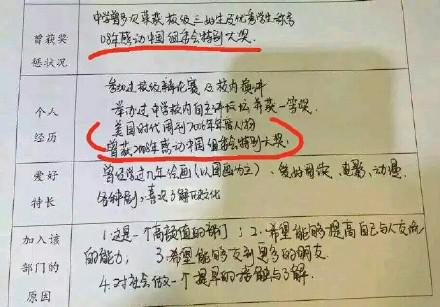 曾获奖
惩状况
中学曾多次荣获校级三好生及优秀学生称号
08年感动中国组委会特别大奖.
个人
经历
参加过校级辩论赛及校内演讲
举办过中学校内自主评并获一等奖.
美国时代周刊2006年年度人物
曾获2008年感动中国组委会特别大奖.
爱好
特长
曾经学过九年绘画(以国画为主)、爱好阅读、电影、动漫、
各种剧,喜欢了解文化
加入该
部门的
原因
1.这是一个高颜值的部门;2.希望能够提高自己与人交流
的能力,3.希望能够交到更多的朋友.
4.对社会做一个提早的接触与了解.